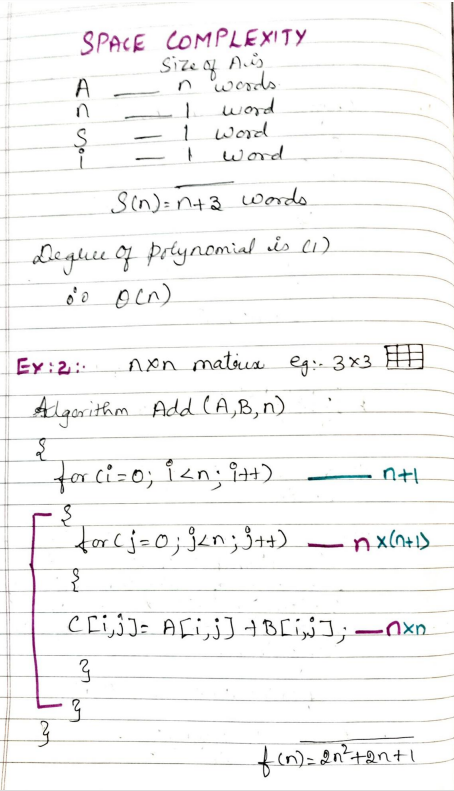 SPACE COMPLEXITY
Size of A is
A — n words
n — 1 word
S — 1 word
i — 1 word
S(n) = n+3 words
Degree of polynomial is (1)
∴ O(n)
Ex:2:- n×n matrix eg:- 3×3
Algorithm Add (A,B,n)
{
for (i=0; i<n; i++) — n+1
{
for (j=0; j<n; j++) — n×(n+1)
{
C[i,j]= A[i,j] + B[i,j]; — n×n
}
}
}
f(n) = 2n²+2n+1